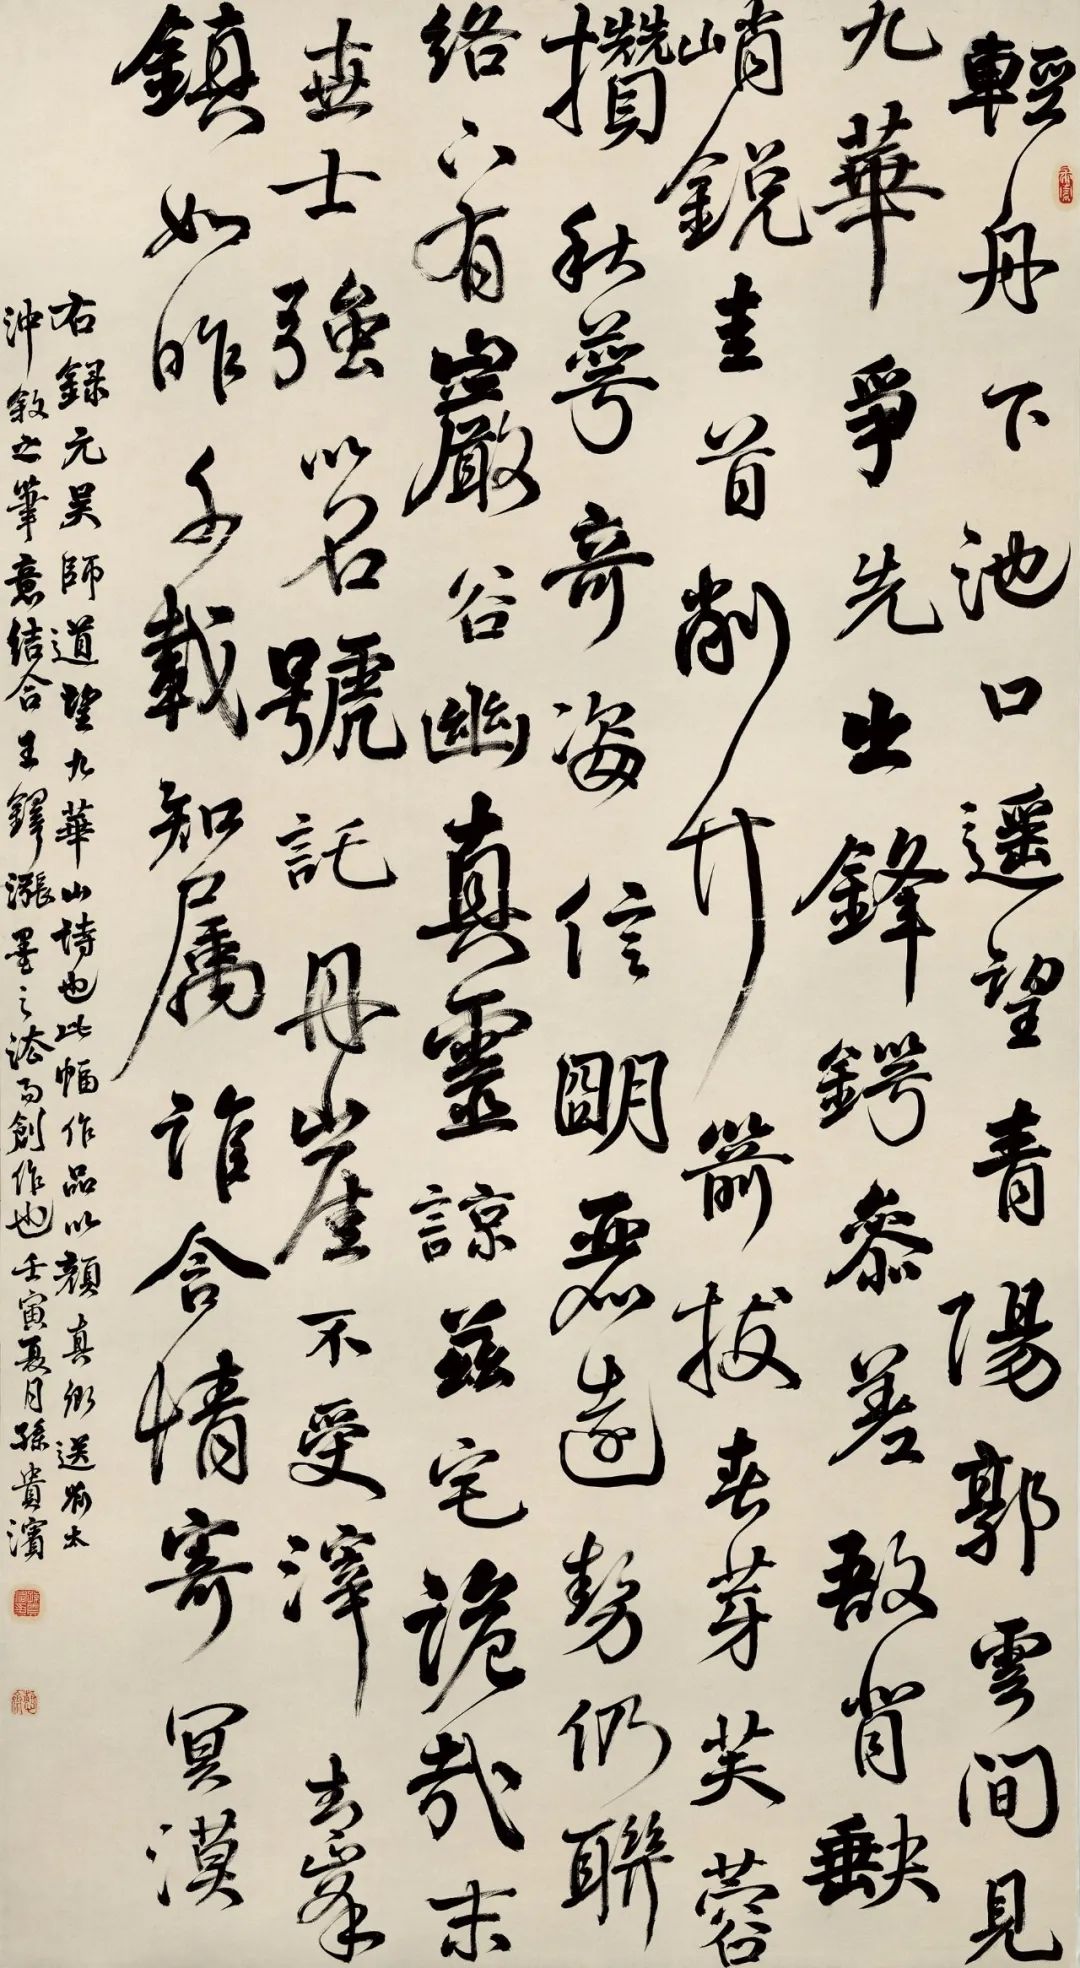 輕舟下池口遥望青陽郭雲間見
九華爭先出鋒鍔參差敵肖缺
峭銳圭首削竹箭拔春芽芙蓉
攢秋萼奇姿信明惡遠勢仍聯
絡下有巖谷幽真靈諒茲宅詭哉末
世士強以名號託丹崖不受滓青峯
鎮如昨千載知屬誰含情寄冥漠
右録元吴師道望九華山詩也此幅作品以顔真卿送劉太
沖敘之筆意結合王鐸漲墨之法而創作也壬寅夏月孫貴濱